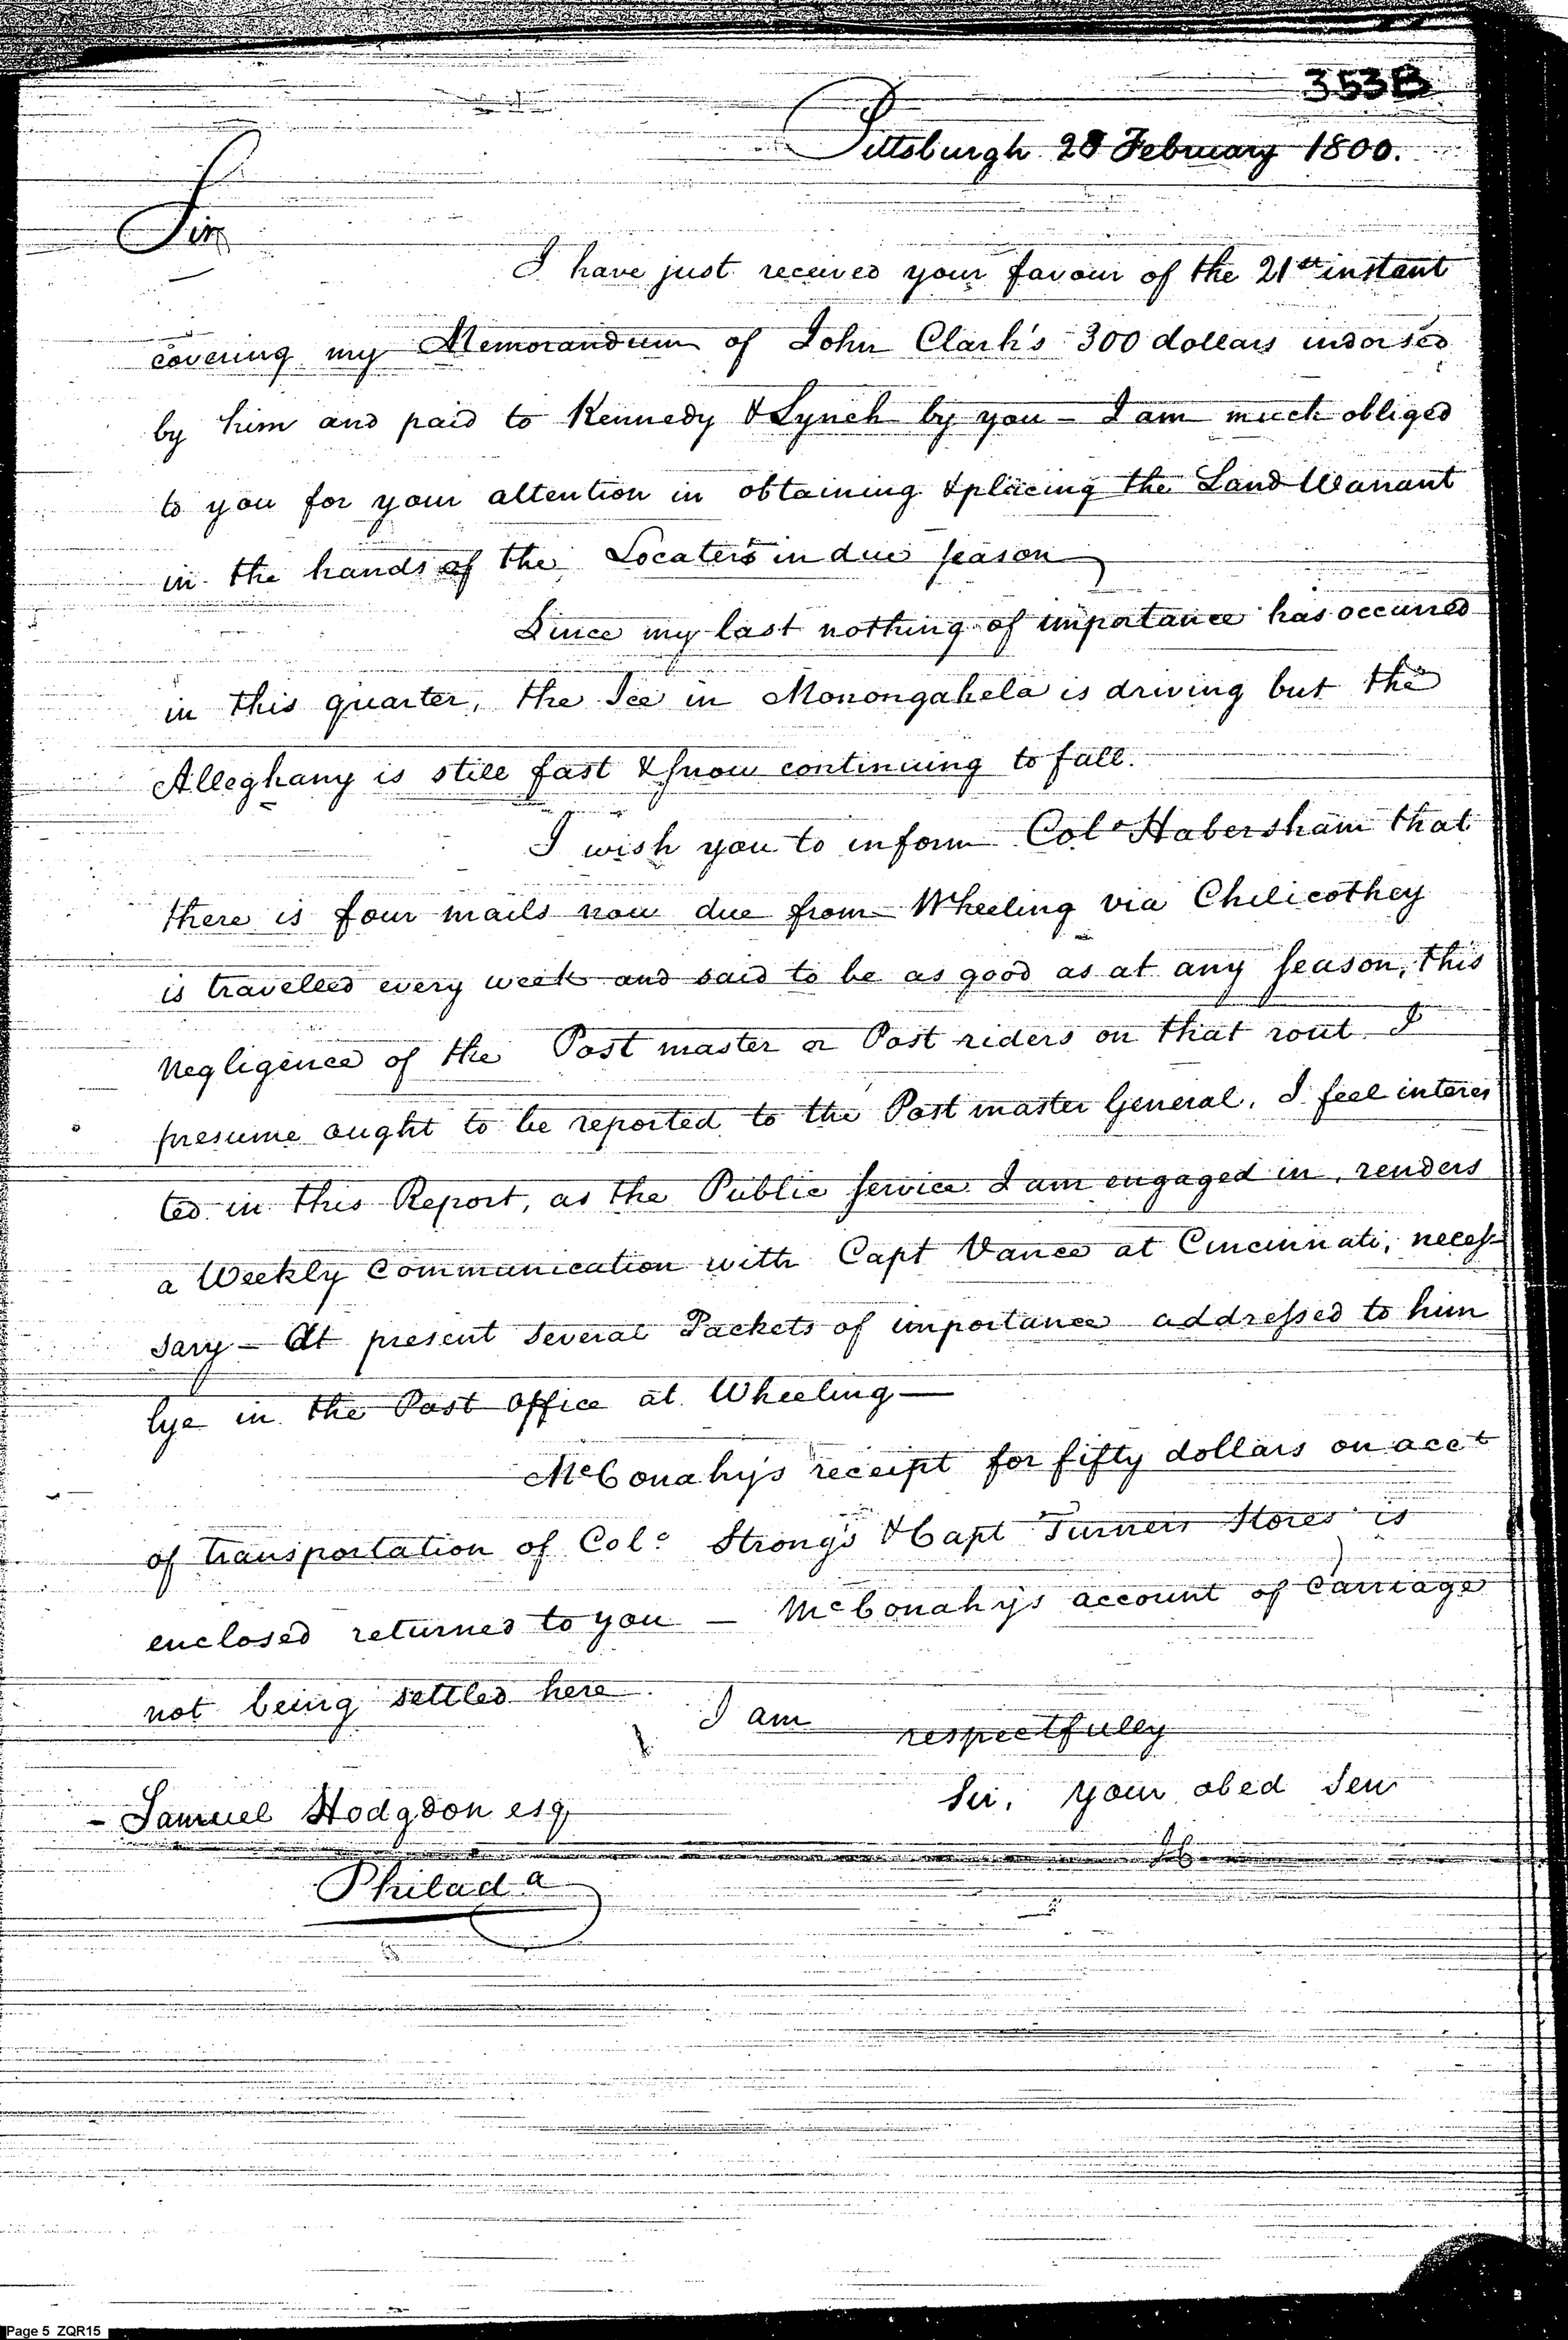 353B
Pittsburgh 28 February 1800.
Sir
I have just received your favour of the 21st instant
covering my Memorandum of John Clark's 300 dollars indorsed
by him and paid to Kennedy & Lynch by you – I am much obliged
to you for your attention in obtaining & placing the Land Warrant
in the hands of the Locaters in due season
Since my last nothing of importance has occurred
in this quarter, the Ice in Monongahela is driving but the
Alleghany is still fast & snow continuing to fall.
I wish you to inform Colo Habersham that
there is four mails now due from Wheeling via Chilicothey
is travelled every week and said to be as good as at any season, this
negligence of the Post master or Post riders on that rout I
presume ought to be reported to the Post master General. I feel interes
ted in this Report, as the Public service I am engaged in, renders
a Weekly Communication with Capt Vance at Cincinnati, neces
sary – At present several Packets of importance addressed to him
lye in the Post Office at Wheeling —
McConahy's receipt for fifty dollars on acct
of transportation of Colo Strong's & Capt Turners Stores is
enclosed returned to you – McConahy's account of Carriage
not being settled here.
I am
respectfully
Sir, your obed Serv
Samuel Hodgdon esq
Philada
Page 5 ZQR15